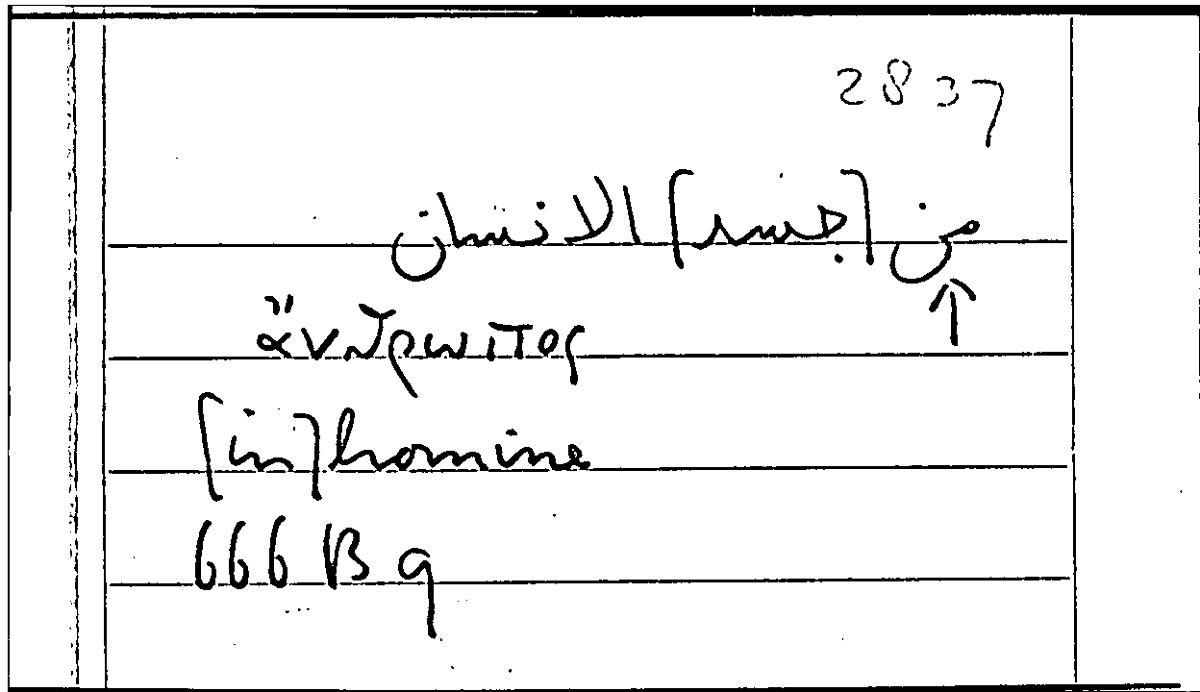 2837
من [جسد] الانسان
ἄνθρωπος
[in] homine
666 B 9